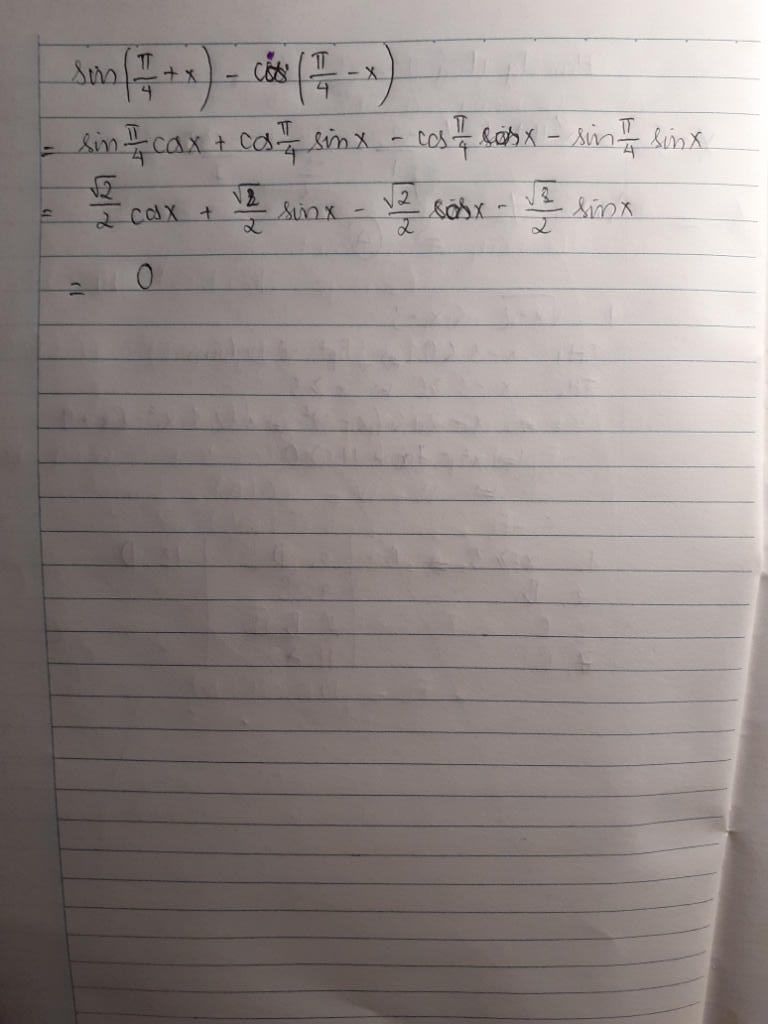 sin(π/4 + x) - cos(π/4 - x)
= sin π/4 cosx + cos π/4 sinx - cos π/4 cosx - sin π/4 sinx
= √2/2 cosx + √2/2 sinx - √2/2 cosx - √2/2 sinx
= 0